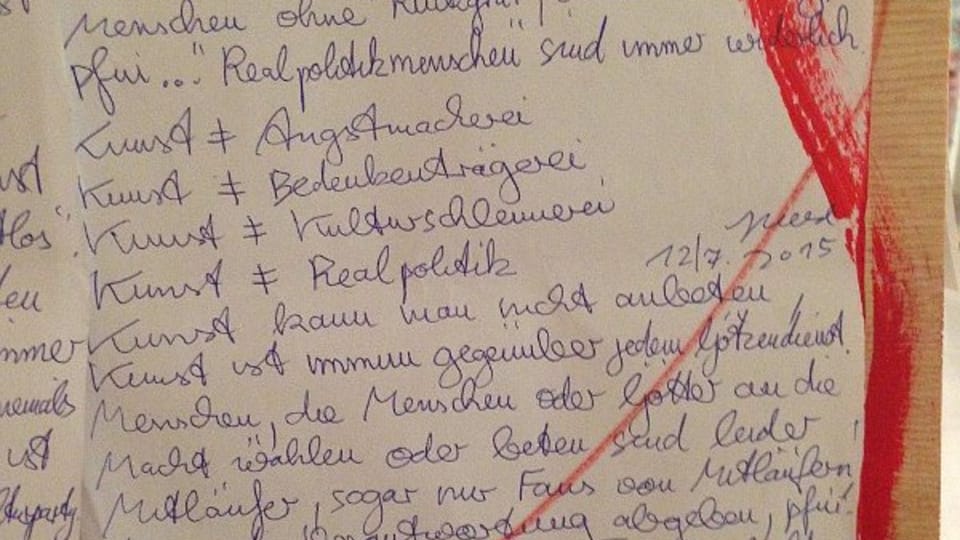 Menschen ohne
pfui..." Realpolitikmenschen" sind immer widerlich
Kunst ≠ Angstmacherei
Kunst ≠ Bedenkenträgerei
Kunst ≠ Kulturschleimerei
Kunst ≠ Realpolitik
12/7. 2015
Kunst kann man nicht anbeten,
Kunst ist immun gegenüber jedem Götzendienst.
Menschen, die Menschen oder Götter an die
Macht wählen oder beten sind leider
Mitläufer, sogar nur Fans von Mitläufern
abgeben, pfui!